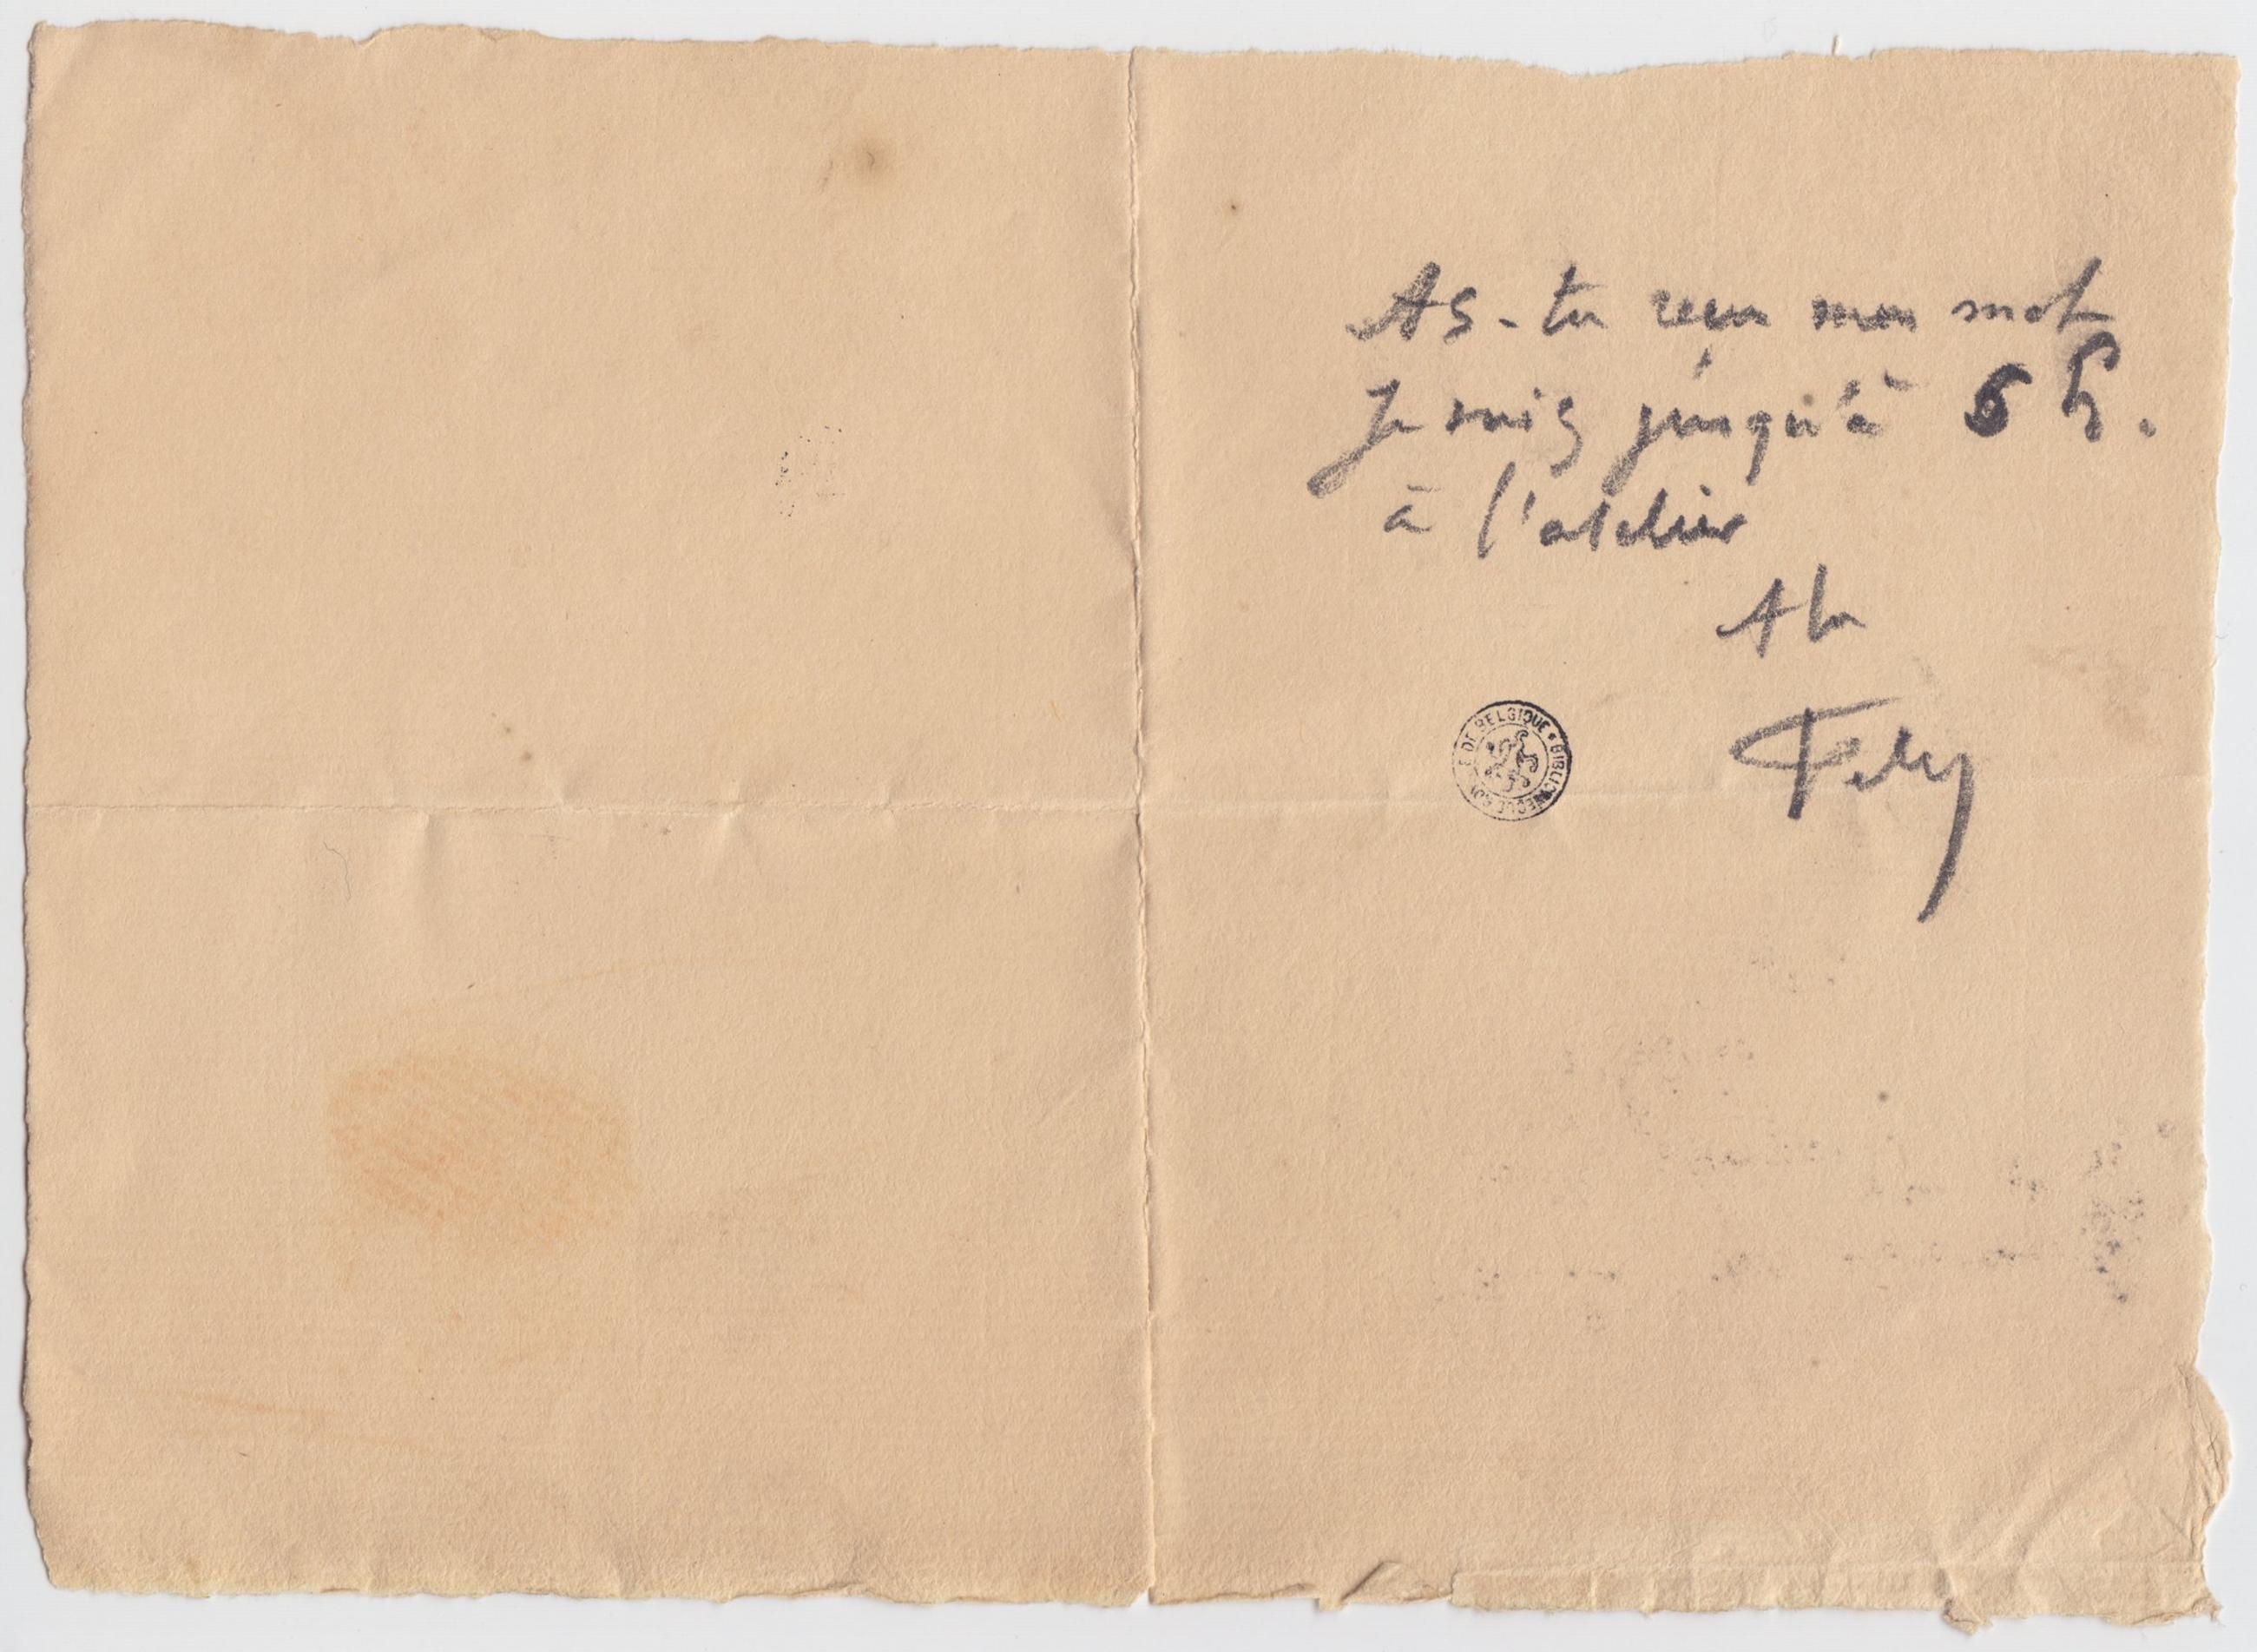 As-tu reçu mon mot
Je suis jusqu'à 6 h.
à l'atelier
A tu
Fély
BIBLIOTHÈQUE ROYALE DE BELGIQUE